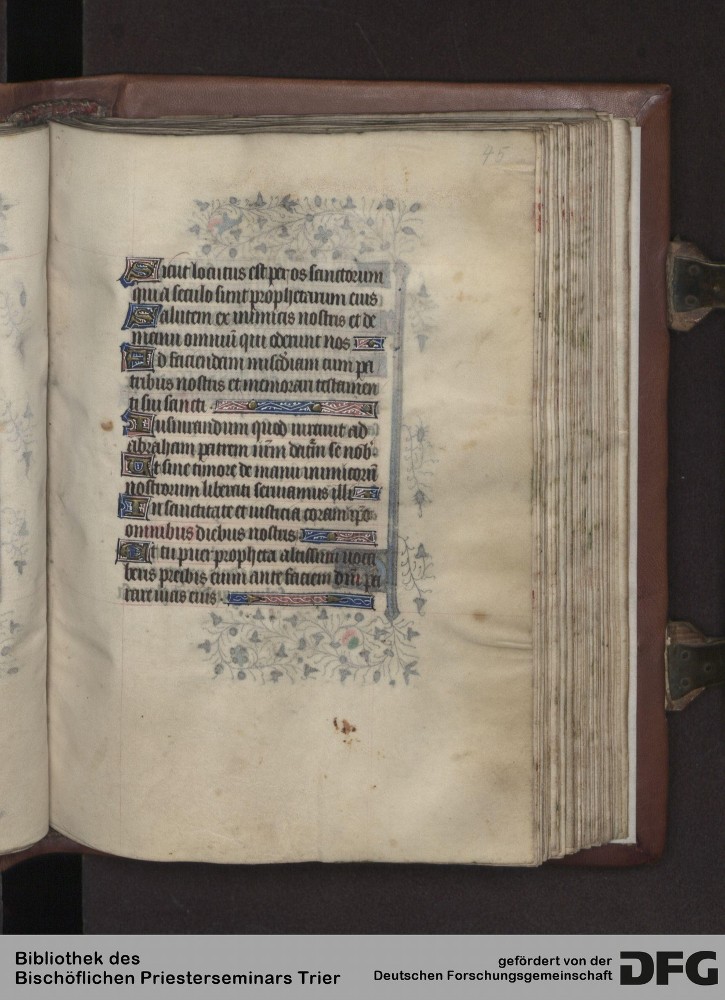 45
Sicut locutus est per os sanctorum
qui a seculo sunt prophetarum eius
Salutem ex inimicis nostris et de
manu omniū qui oderunt nos
Ad faciendam mis̄cdiam cum pa
tribus nostris et memorari testamen
ti sui sancti
Iusiurandum quod iurauit ad
abraham patrem nr̄m daturū se nob
Ut sine timore de manu inimicorū
nostrorum liberati seruiamus illi
In sanctitate et iusticia coram ip̄o
omnibus diebus nostris
Et tu puer propheta altissimi uoca
beris preibis enim ante faciem dn̄i pa
rare uias eius
Bibliothek des
Bischöflichen Priesterseminars Trier
gefördert von der
Deutschen Forschungsgemeinschaft
DFG